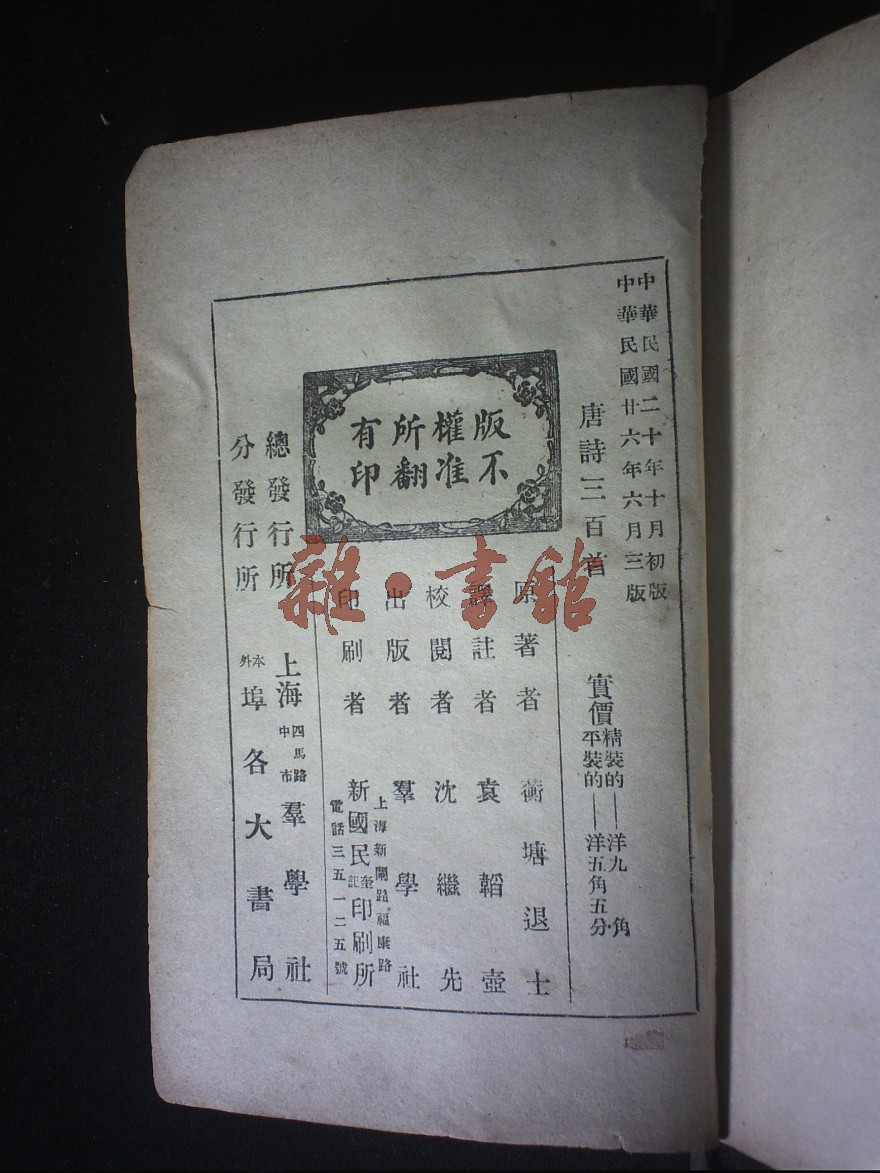 中華民國二十年十月初版
中華民國廿六年六月三版
唐詩三百首
實價
精裝的——洋九角
平裝的——洋五角五分
版權所有
不准翻印
原著者 蘅塘退士
譯註者 袁韜壺
校閱者 沈繼先
出版者 羣學社
印刷者 新國民奎記印刷所
上海新閘路福康路
電話三五一二五號
總發行所 上海四馬路中市羣學社
分發行所 本外埠各大書局
雜·書館